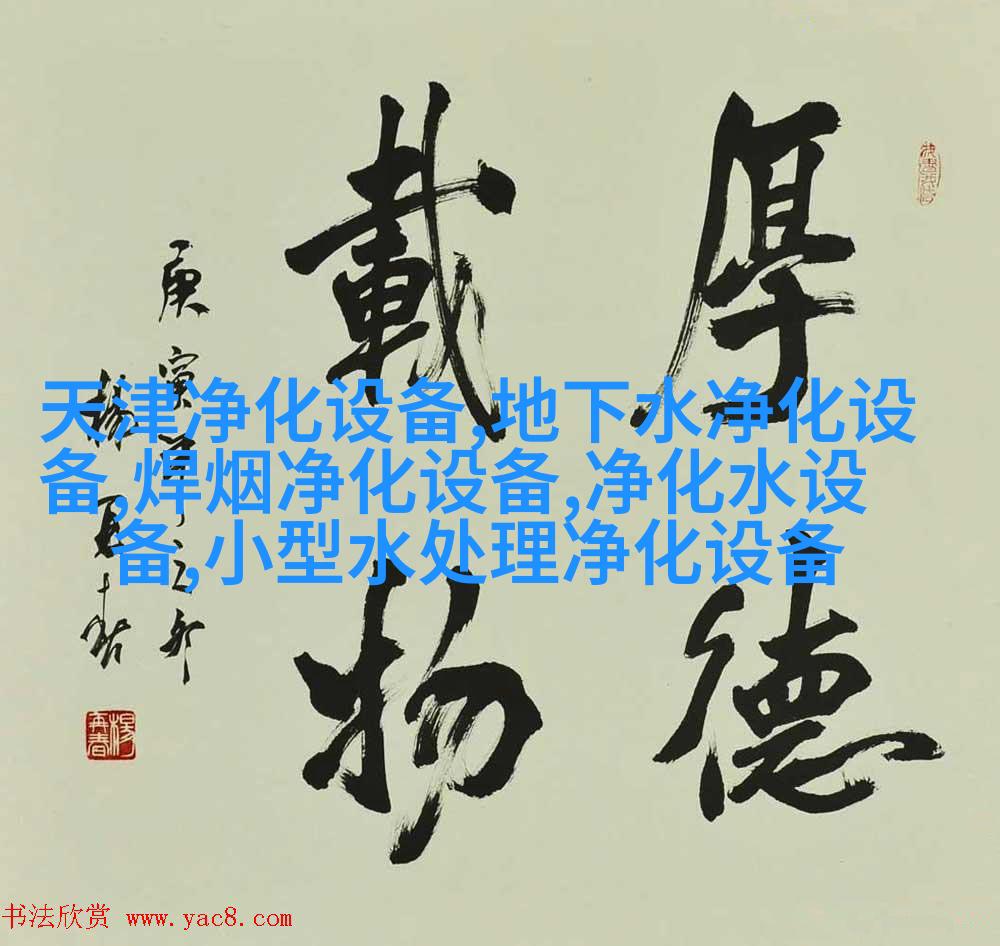 厚德
載物
庚寅年之卯
楊再春
楊再春
天津净化设备,地下水净化设
备,焊烟净化设备,净化水设
备,小型水处理净化设备
书法欣赏 www.yac8.com